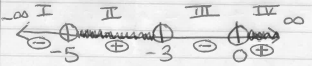 -∞ I II III IV ∞
⊖ ⊕ ⊖ ⊕
-5 -3 0